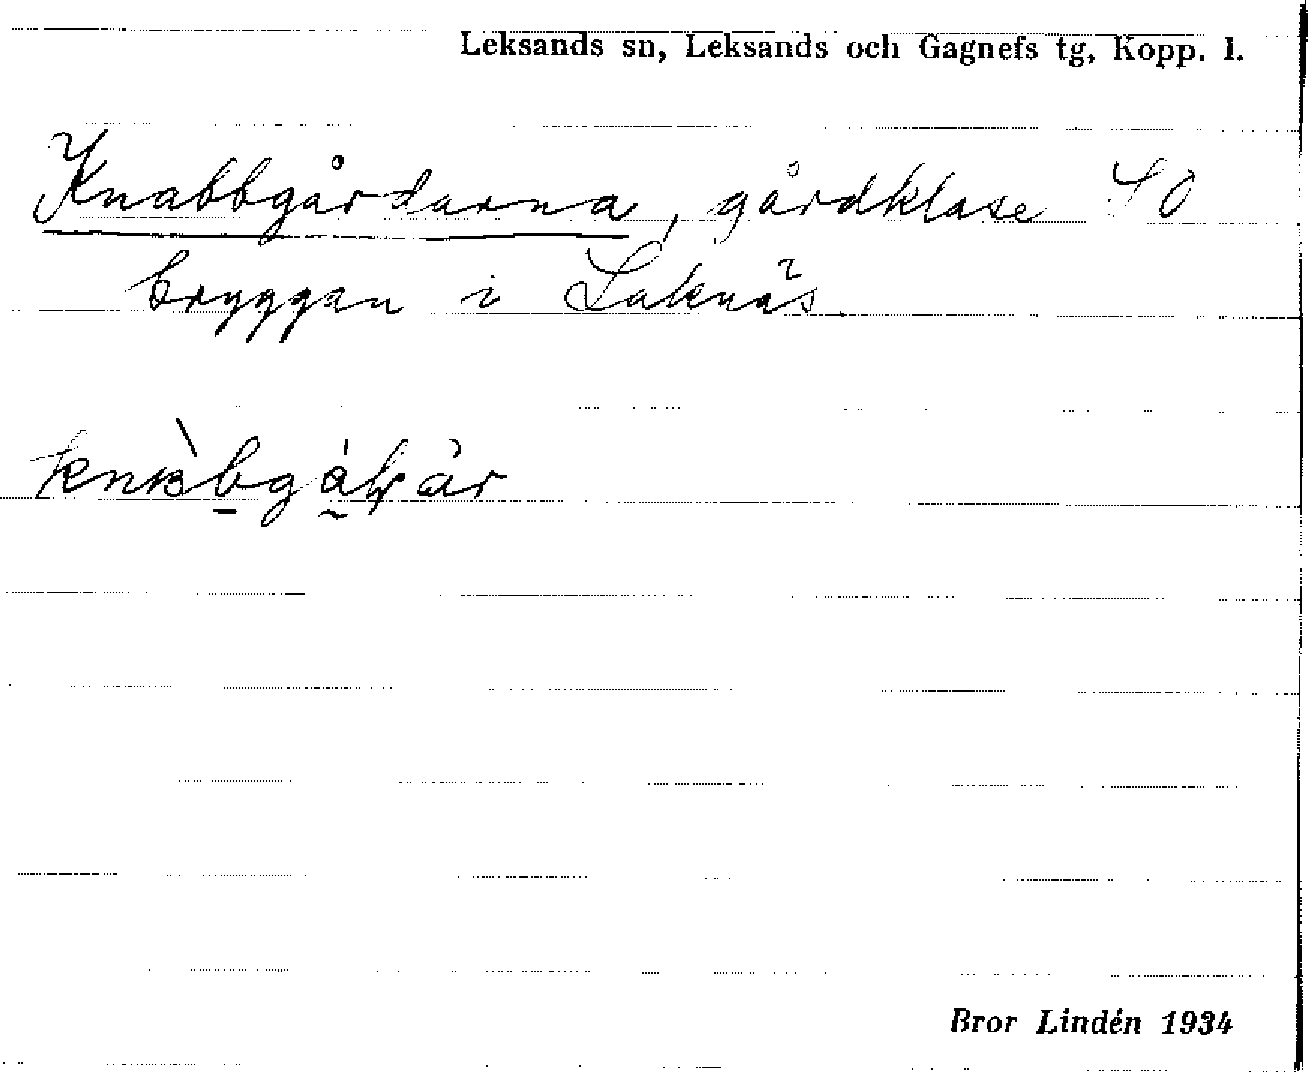 Leksands sn, Leksands och Gagnefs tg, Kopp. l.
Knabbgårdarna, gårdklase SO
bryggan i Laknäs
Bror Lindén 1934